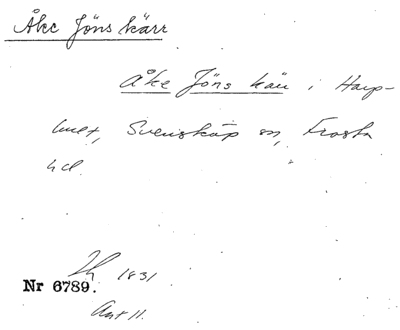 Åke Jöns kärr
Åke Jöns kärr i Harp-
Svensköp sn, Frosta
hd.
1831
Nr 6789.
Akt 11.